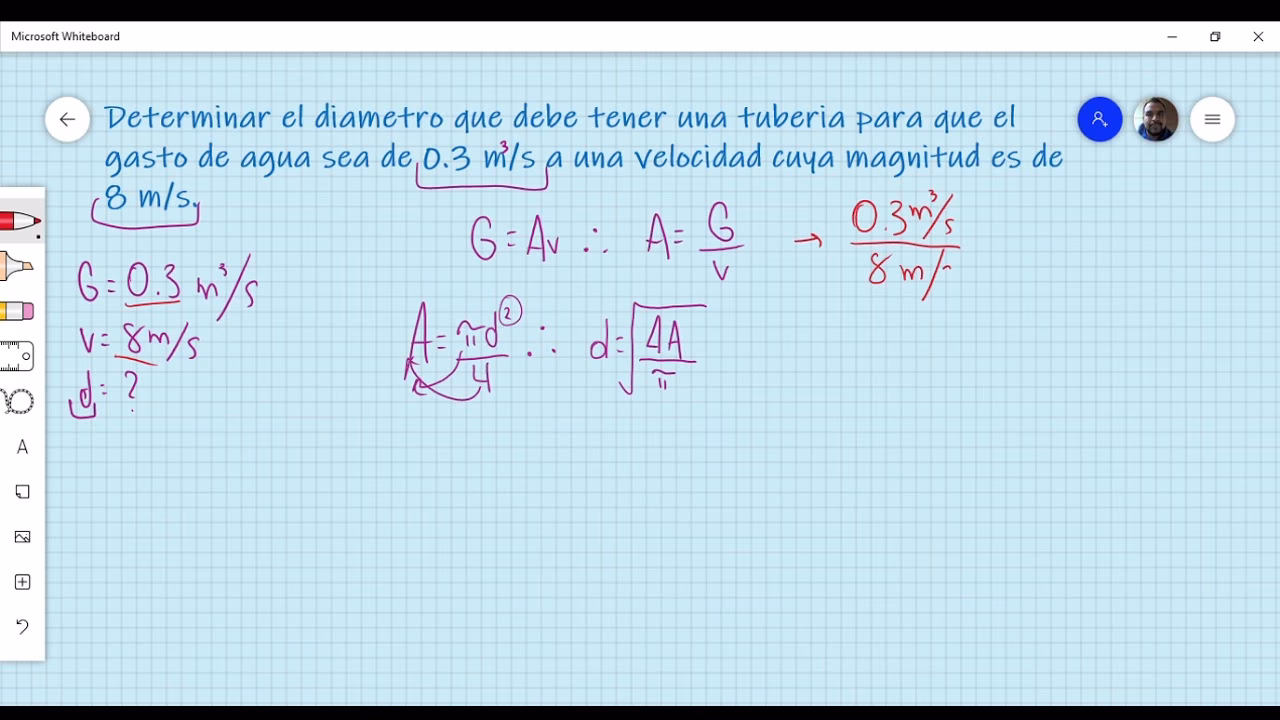 Microsoft Whiteboard
Determinar el diametro que debe tener una tuberia para que el
gasto de agua sea de 0.3 m³/s a una velocidad cuya magnitud es de
8 m/s.
G = Av ∴ A = G/v → 0.3 m³/s / 8 m/
G = 0.3 m³/s
v = 8 m/s
d = ?
A = πd²/4 ∴ d = √(4A/π)
A